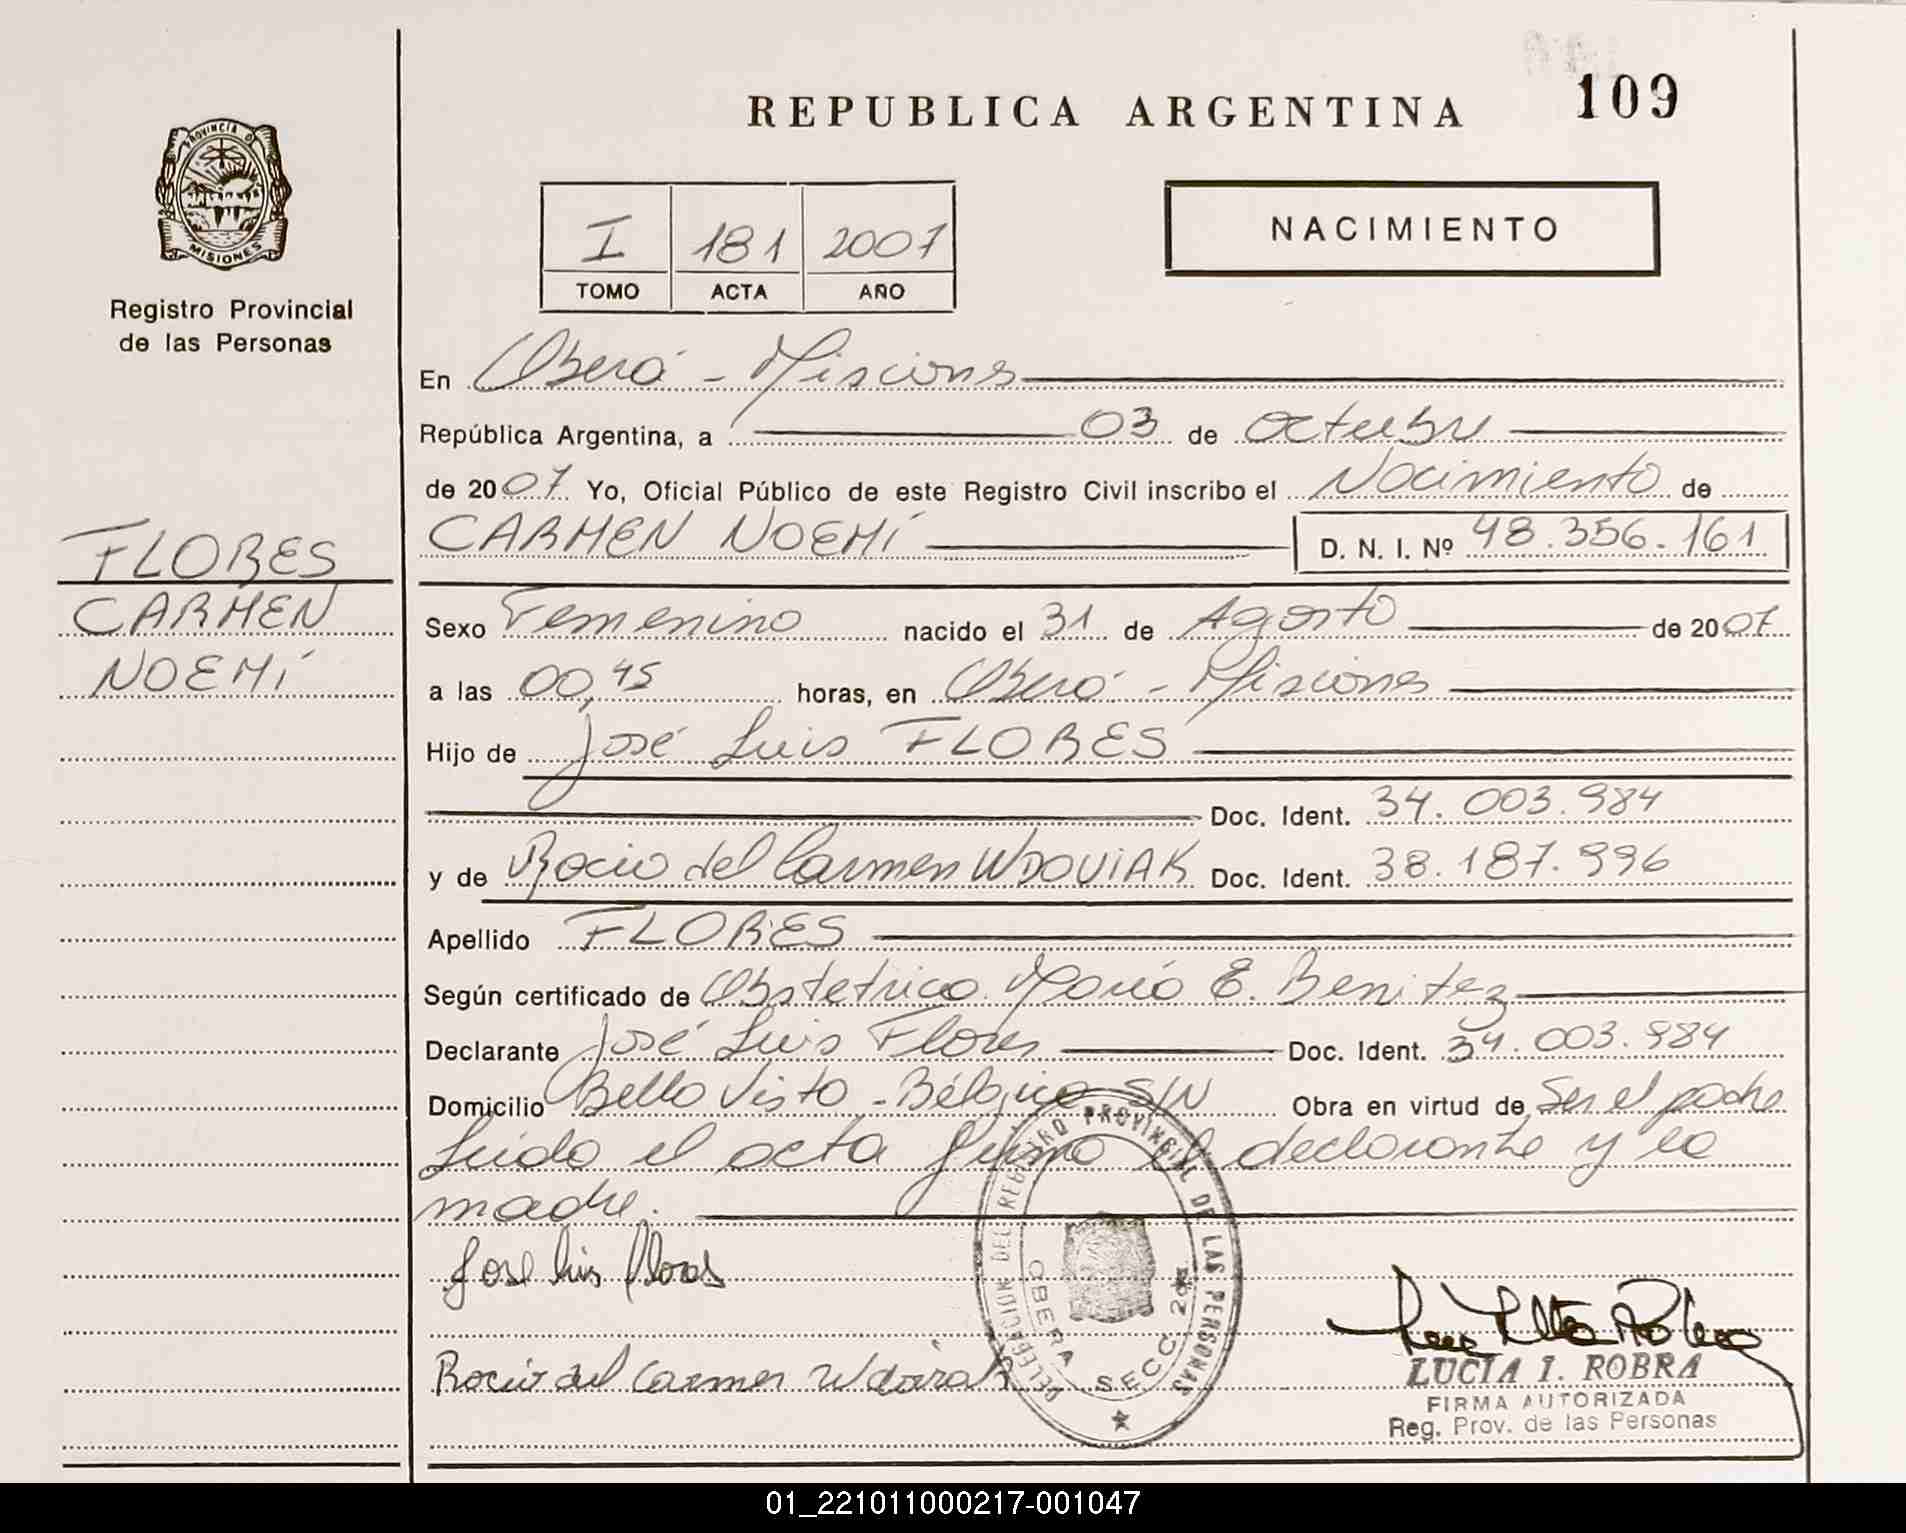 REPUBLICA ARGENTINA
109
PROVINCIA DE
MISIONES
Registro Provincial
de las Personas
I 181 2007
TOMO ACTA AÑO
NACIMIENTO
En Oberá - Misiones
República Argentina, a 03 de Octubre
de 2007 Yo, Oficial Público de este Registro Civil inscribo el Nacimiento de
CARMEN NOEMÍ D. N. I. Nº 48.356.161
FLORES
CARMEN
NOEMÍ
Sexo Femenino nacido el 31 de Agosto de 2007
a las 00,45 horas, en Oberá - Misiones
Hijo de José Luis FLORES
Doc. Ident. 34.003.984
y de Rocio del Carmen WDOVIAK Doc. Ident. 38.187.996
Apellido FLORES
Según certificado de Obstetrica María E. Benitez
Declarante José Luis Flores Doc. Ident. 34.003.984
Domicilio Bella Vista - Bélgica S/N Obra en virtud de Ser el padre
Leida el acta firma el declarante y la
madre.
Jose luis flores
Rocio del Carmen Wdoviak
DELEGACION DEL REGISTRO PROVINCIAL DE LAS PERSONAS
OBERA SECC. 2da
LUCIA I. ROBRA
FIRMA AUTORIZADA
Reg. Prov. de las Personas
01_221011000217-001047